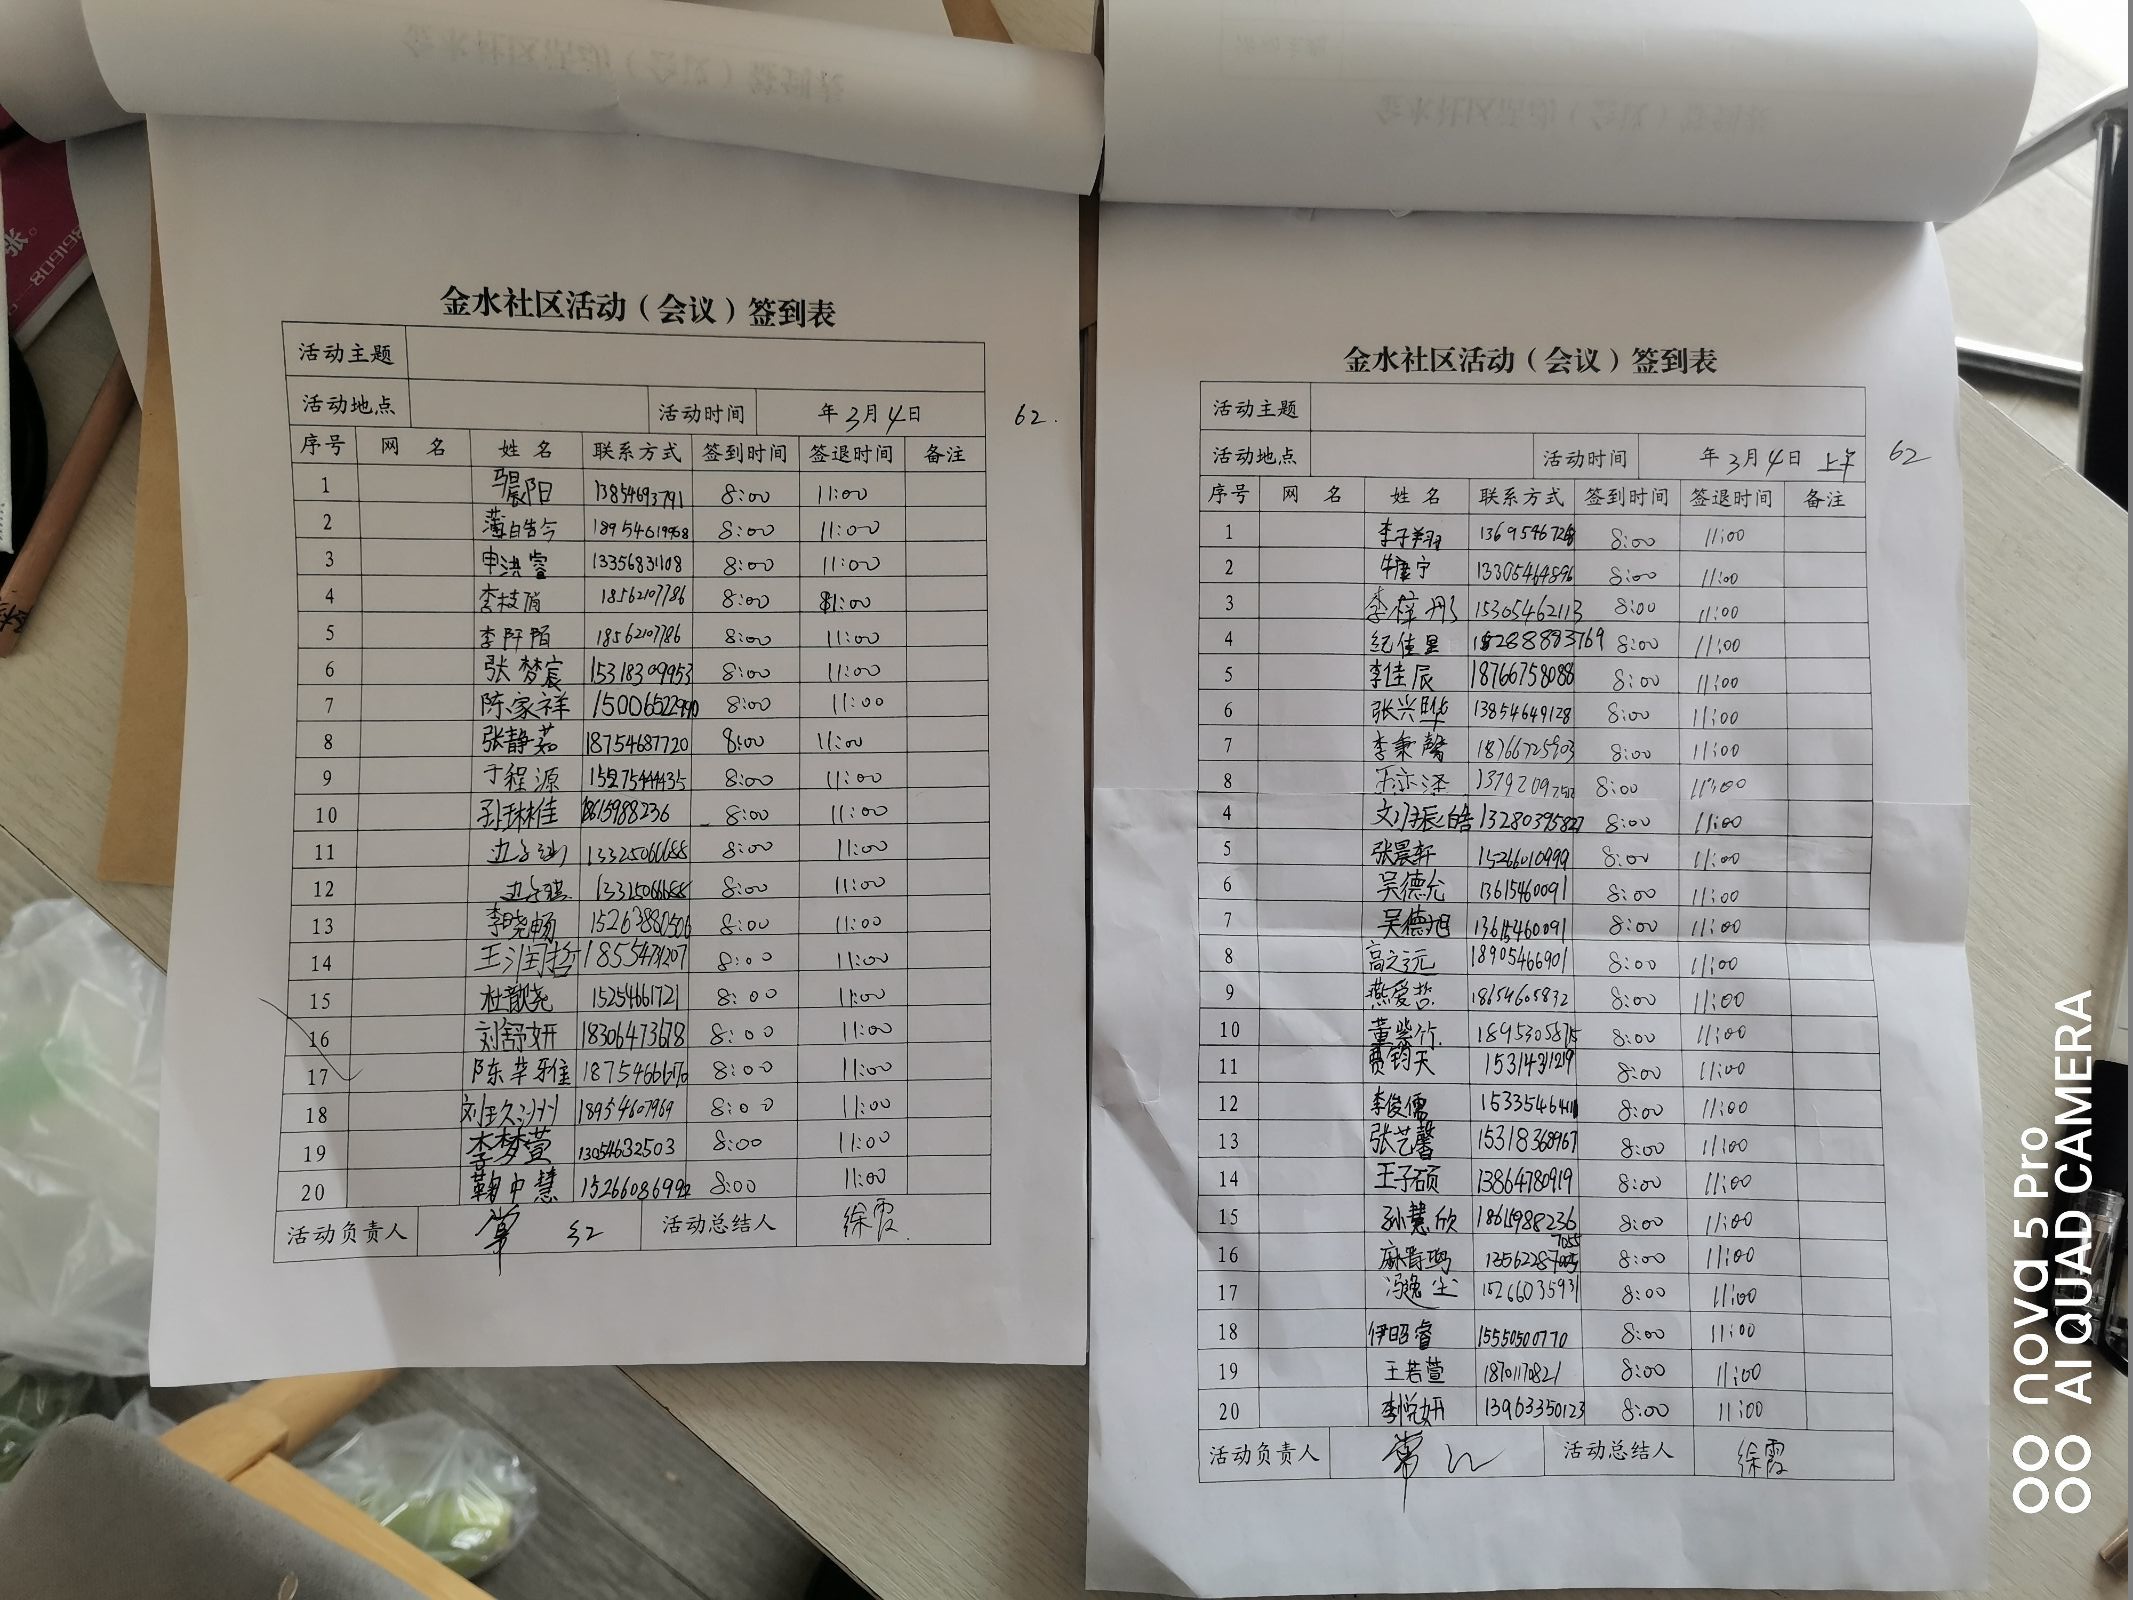 金水社区活动（会议）签到表
活动主题
活动地点 活动时间 年3月4日 62.
序号 网 名 姓 名 联系方式 签到时间 签退时间 备注
1 13854693791 8:00 11:00
2 8:00 11:00
3 申洪睿 13356831108 8:00 11:00
4 18562107786 8:00
5 李阡陌 18562107786 8:00 11:00
6 张梦宸 15318309953 8:00 11:00
7 陈家祥 8:00 11:00
8 张静茹 18754687720 8:00 11:00
9 于程源 8:00 11:00
10 孙琳佳 18615988236 8:00 11:00
11 8:00 11:00
12 8:00 11:00
13 李晓畅 15263880506 8:00 11:00
14 王润哲 8:00 11:00
15 杜歆尧 15254661721 8:00 11:00
16 刘舒妍 18306473678 8:00 11:00
17 8:00 11:00
18 18954607969 8:00 11:00
19 李梦萱 13054632503 8:00 11:00
20 鞠中慧 8:00 11:00
活动负责人 常红 活动总结人 徐霞
金水社区活动（会议）签到表
活动主题
活动地点 活动时间 年3月4日 上午 62
序号 网 名 姓 名 联系方式 签到时间 签退时间 备注
1 李子翔 8:00 11:00
2 13305464896 8:00 11:00
3 李梓彤 15305462113 8:00 11:00
4 纪佳星 8:00 11:00
5 李佳辰 18766758088 8:00 11:00
6 张兴晔 13854649128 8:00 11:00
7 李秉馨 18766725903 8:00 11:00
8 8:00 11:00
4 8:00 11:00
5 张晨轩 15266010999 8:00 11:00
6 吴德允 13615460091 8:00 11:00
7 吴德旭 13615460091 8:00 11:00
8 高之元 18905466901 8:00 11:00
9 燕爱哲 18654605832 8:00 11:00
10 董紫竹 18953058715 8:00 11:00
11 贾钧天 15314311219 8:00 11:00
12 李俊儒 8:00 11:00
13 张艺馨 15318368967 8:00 11:00
14 王子硕 13864780919 8:00 11:00
15 孙慧欣 18615988236 8:00 11:00
16 8:00 11:00
17 冯逸尘 15266035931 8:00 11:00
18 伊昭睿 15550500770 8:00 11:00
19 王若萱 18701170821 8:00 11:00
20 李悦妍 13963350123 8:00 11:00
活动负责人 常红 活动总结人 徐霞
nova 5 Pro
AI QUAD CAMERA